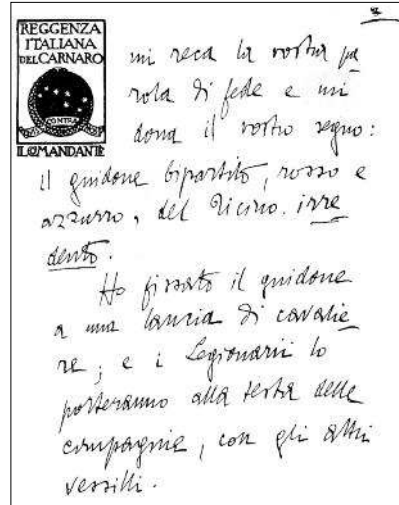 REGGENZA
ITALIANA
DEL CARNARO
CONTRA
IL COMANDANTE
mi reca la vostra pa
rola di fede e mi
dona il vostro segno:
il guidone bipartito, rosso e
azzurro, del Ticino irre
dento.
Ho fissato il guidone
a una lancia di cavalie
re; e i Legionarii lo
porteranno alla testa delle
compagnie, con gli altri
vessilli.